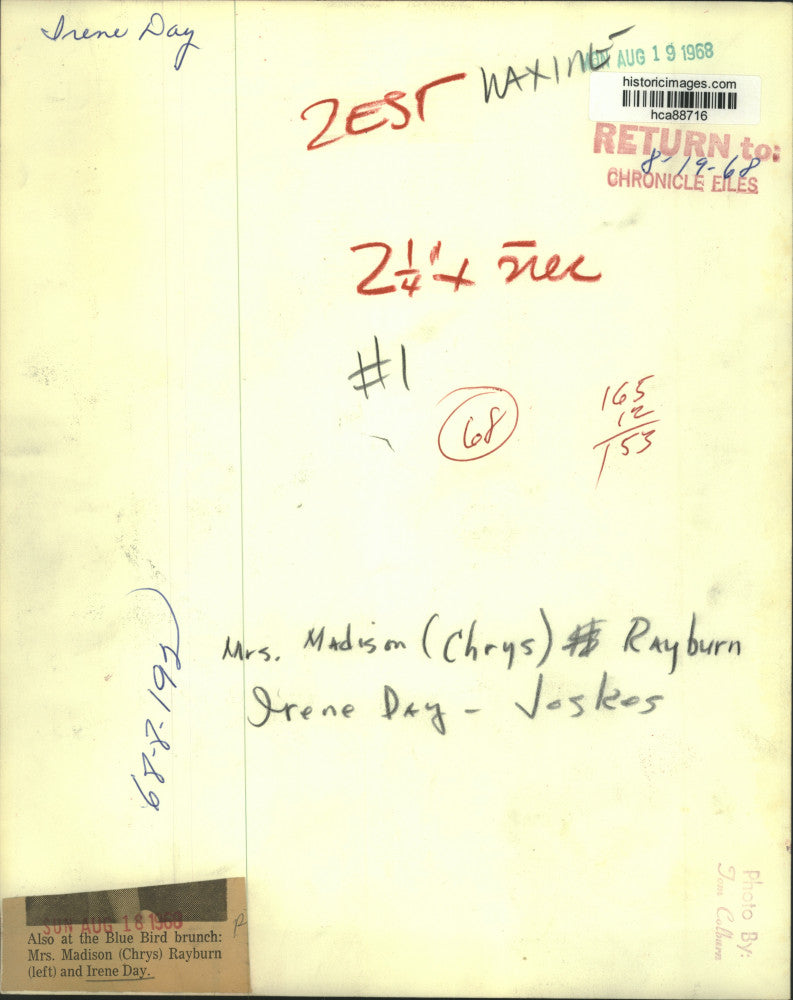 Irene Day
ZEST
MAXINE
MON AUG 19 1968
historicimages.com
hca88716
RETURN to:
8-19-68
CHRONICLE FILES
2 1/4" x
#1
68
165
12
153
Mrs. Madison (Chrys) Rayburn
Irene Day - Joskes
68-8-192
SUN AUG 18 1968
Also at the Blue Bird brunch:
Mrs. Madison (Chrys) Rayburn
(left) and Irene Day.
Photo By:
Tom Colburn